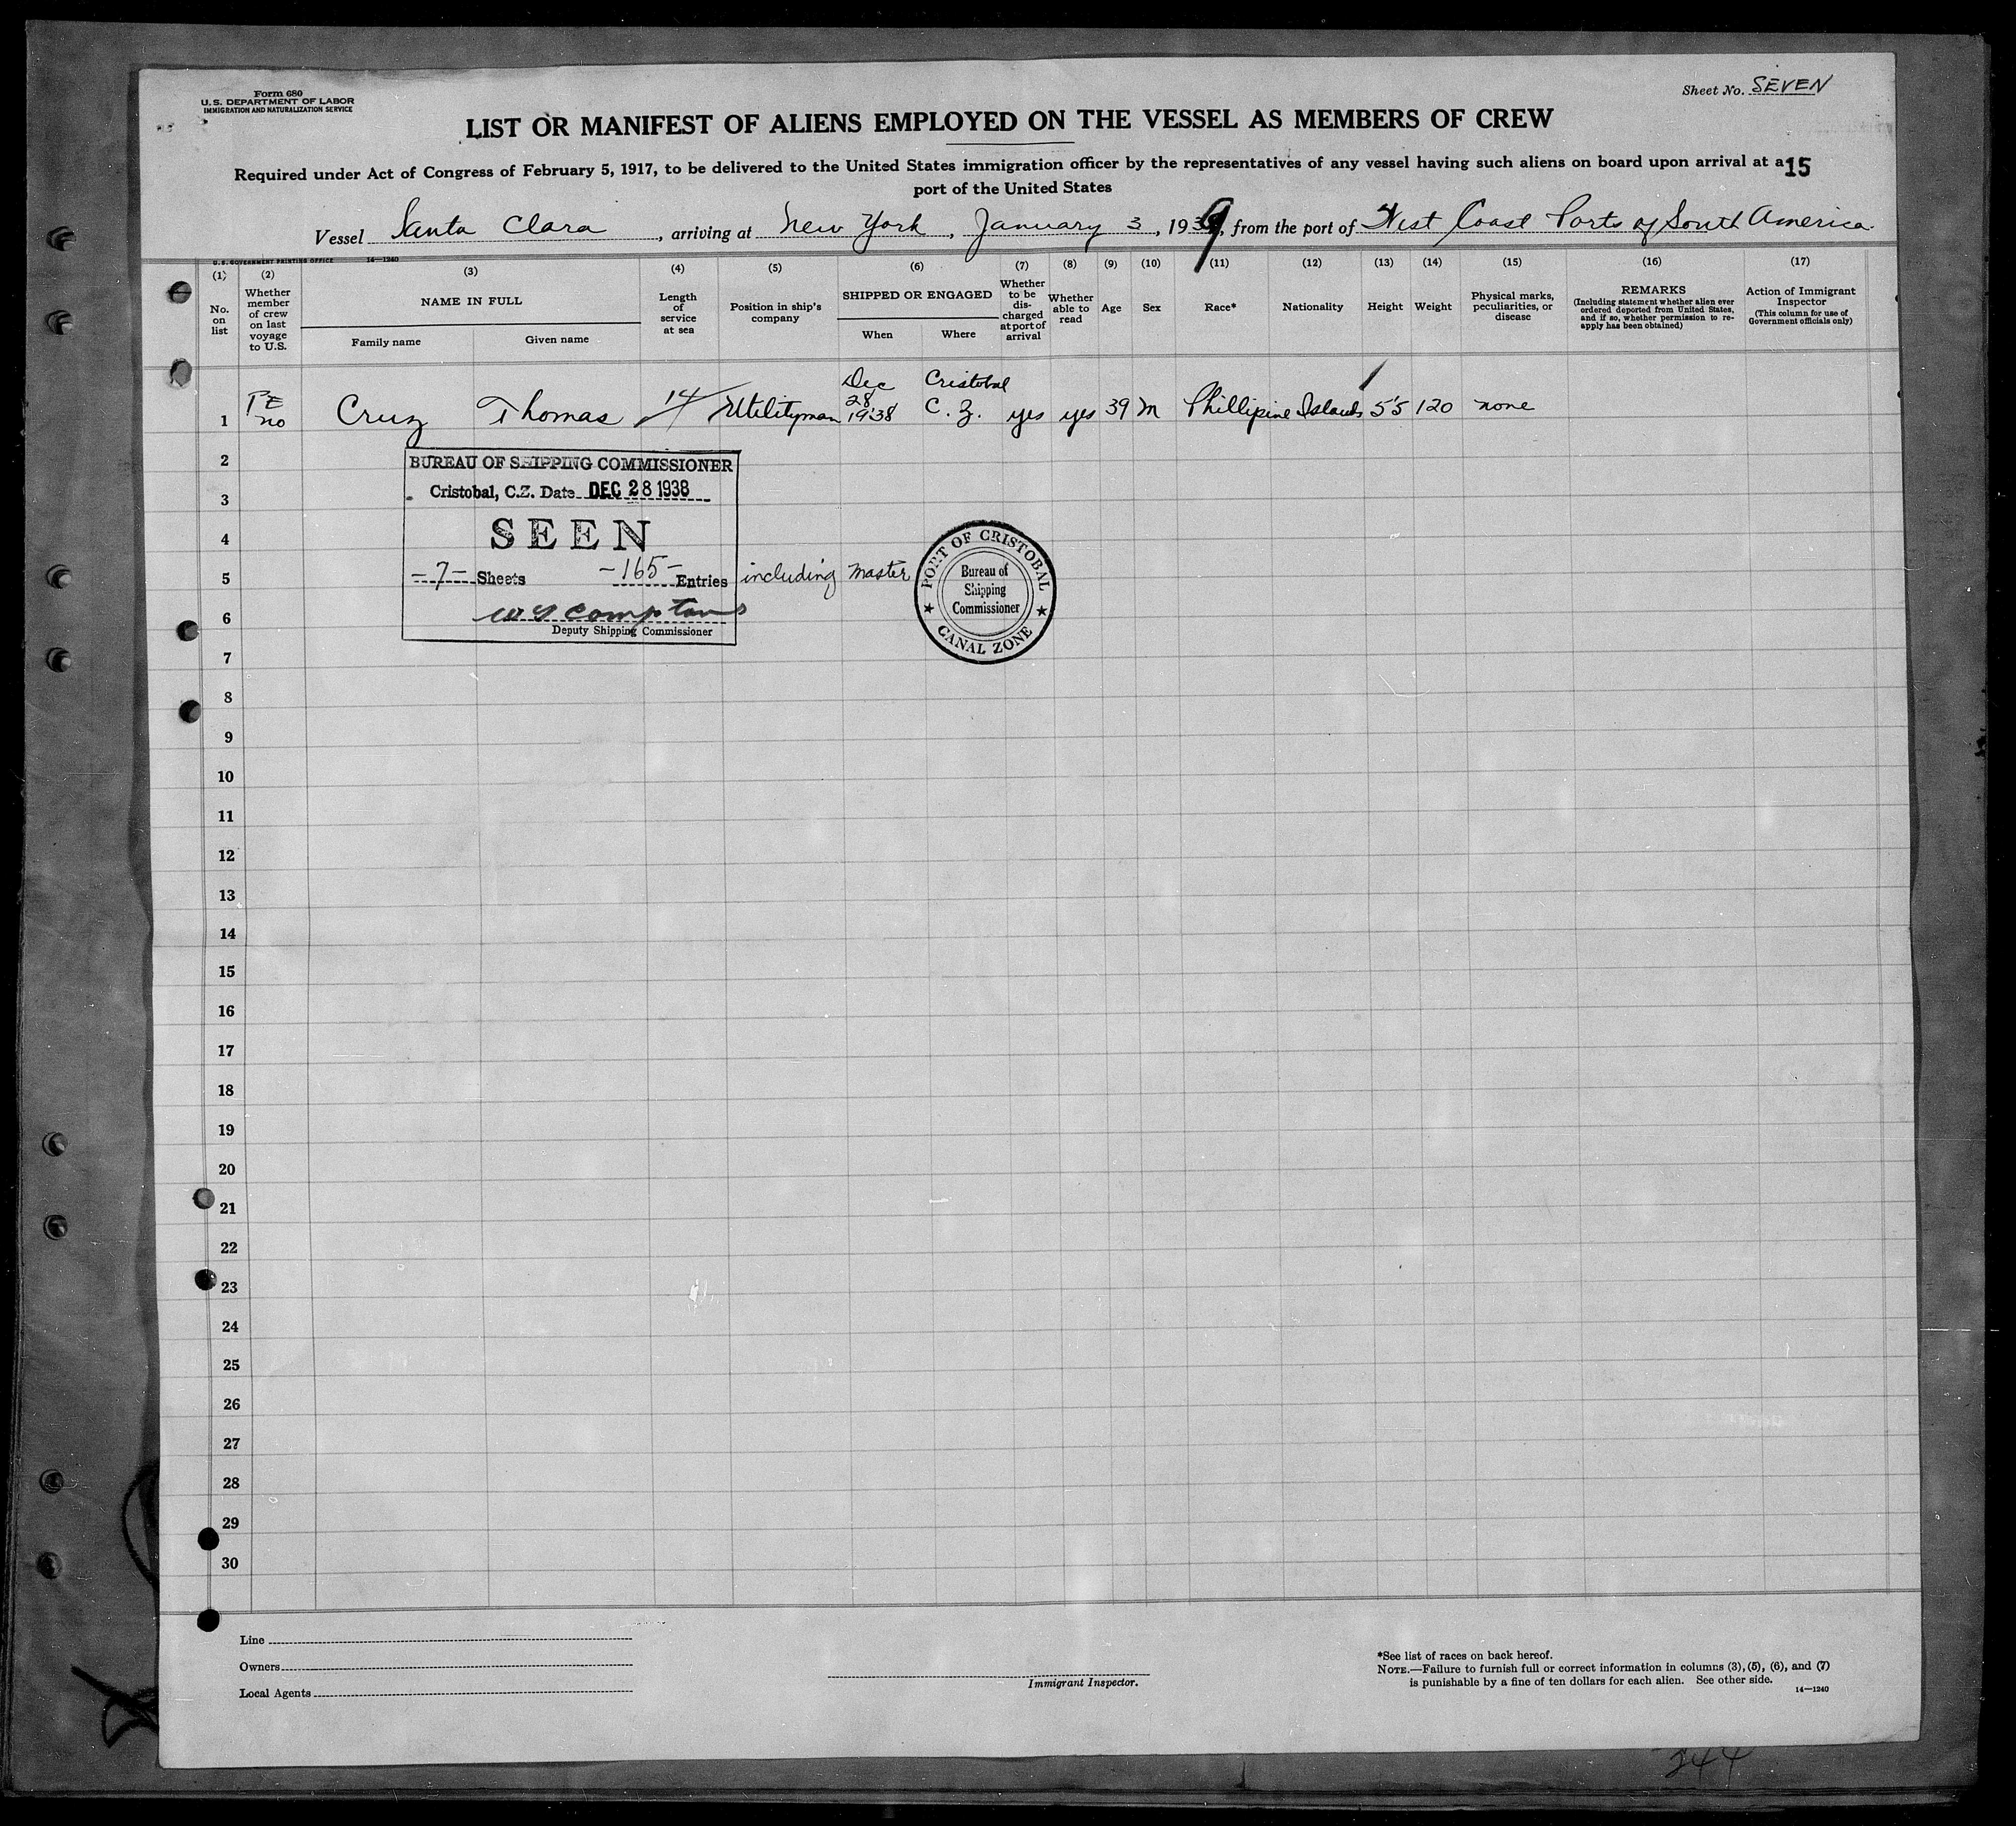 Form 680
U. S. DEPARTMENT OF LABOR
IMMIGRATION AND NATURALIZATION SERVICE
Sheet No. SEVEN
LIST OR MANIFEST OF ALIENS EMPLOYED ON THE VESSEL AS MEMBERS OF CREW
Required under Act of Congress of February 5, 1917, to be delivered to the United States immigration officer by the representatives of any vessel having such aliens on board upon arrival at a
15
port of the United States
Vessel Santa Clara, arriving at New York, January 3, 1939, from the port of West Coast Ports of South America.
U. S. GOVERNMENT PRINTING OFFICE 14—1240
(1) No. on list
(2) Whether member of crew on last voyage to U.S.
(3) NAME IN FULL
Family name
Given name
(4) Length of service at sea
(5) Position in ship's company
(6) SHIPPED OR ENGAGED
When
Where
(7) Whether to be discharged at port of arrival
(8) Whether able to read
(9) Age
(10) Sex
(11) Race*
(12) Nationality
(13) Height
(14) Weight
(15) Physical marks, peculiarities, or disease
(16) REMARKS
(Including statement whether alien ever ordered deported from United States, and if so, whether permission to reapply has been obtained)
(17) Action of Immigrant Inspector
(This column for use of Government officials only)
1 no Cruz Thomas 14 Utilityman Dec 28 1938 Cristobal C. Z. yes yes 39 M Phillipine Islands 5'5 120 none
2
3
4
5
6
7
8
9
10
11
12
13
14
15
16
17
18
19
20
21
22
23
24
25
26
27
28
29
30
BUREAU OF SHIPPING COMMISSIONER
Cristobal, C.Z. Date DEC 28 1938
SEEN
-7- Sheets -165- Entries including Master
Compton
Deputy Shipping Commissioner
PORT OF CRISTOBAL
Bureau of
Shipping
Commissioner
★ CANAL ZONE ★
Line
Owners
Local Agents
Immigrant Inspector.
*See list of races on back hereof.
NOTE.—Failure to furnish full or correct information in columns (3), (5), (6), and (7)
is punishable by a fine of ten dollars for each alien. See other side.
14—1240
244